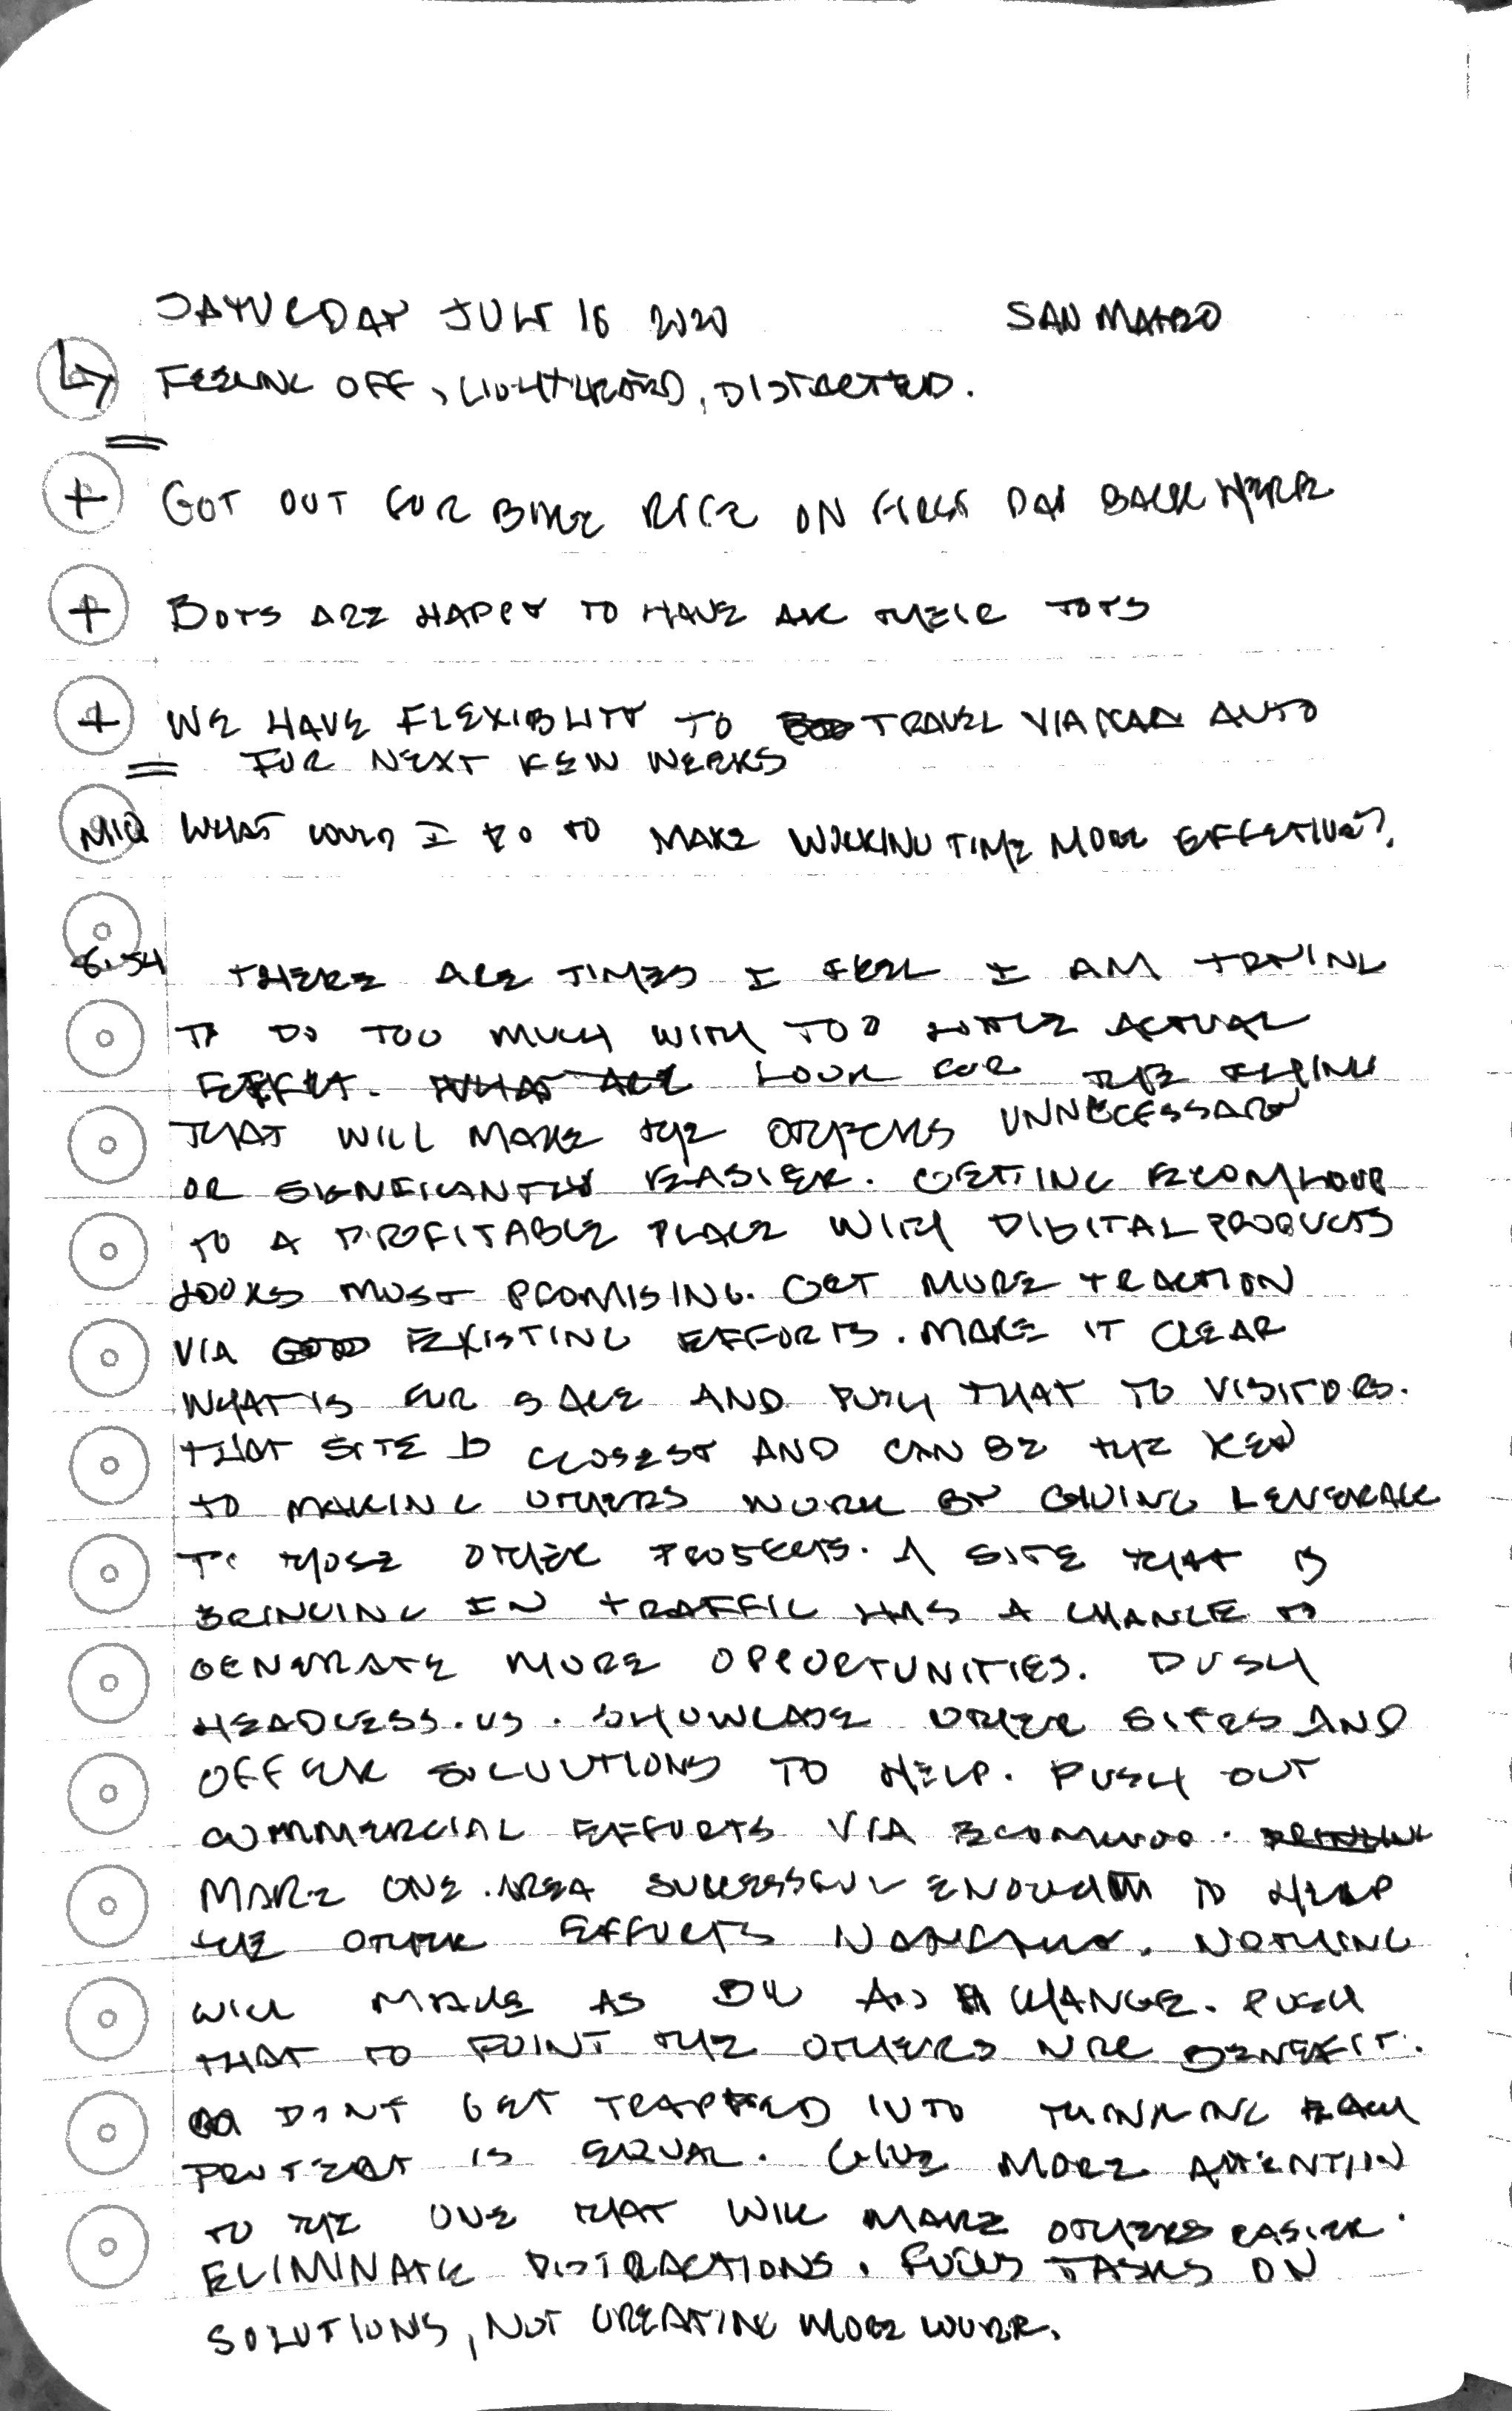 SATURDAY JULY 18 2020 SAN MATEO
FEELING OFF, LIGHTHEADED, DISTRACTED.
+ GOT OUT FOR BIKE RIDE ON FIRST DAY BACK HERE
+ BOYS ARE HAPPY TO HAVE ALL THEIR TOYS
+ WE HAVE FLEXIBLITY TO TRAVEL VIA AUTO
FOR NEXT FEW WEEKS
MIQ WHAT COULD I DO TO MAKE WORKING TIME MORE EFFECTIVE?
6:54 THERE ARE TIMES I FEEL I AM TRYING
TO DO TOO MUCH WITH TOO LITTLE ACTUAL
EFFECT. WHAT ARE LOOK FOR THE THING
THAT WILL MAKE THE OTHERS UNNECESSARY
OR SIGNIFICANTLY EASIER. GETTING ECOMLOOP
TO A PROFITABLE PLACE WITH DIGITAL PRODUCTS
LOOKS MOST PROMISING. GET MORE TRACTION
VIA EXISTING EFFORTS. MAKE IT CLEAR
WHAT IS FOR SALE AND PUSH THAT TO VISITORS.
THAT SITE IS CLOSEST AND CAN BE THE KEY
TO MAKING OTHERS WORK BY GIVING LEVERAGE
TO THOSE OTHER PROJECTS. A SITE THAT IS
BRINGING IN TRAFFIC HAS A CHANCE TO
GENERATE MORE OPPORTUNITIES. PUSH
HEADLESS.US. SHOWCASE OTHER SITES AND
OFFER SOLUUTIONS TO HELP. PUSH OUT
COMMERCIAL EFFORTS VIA ECOMLOOP.
MAKE ONE AREA SUCCESSFUL ENOUGH TO HELP
THE OTHER EFFORTS NATURALLY. NOTHING
WILL MAKE AS BIG A CHANGE. PUSH
THAT TO POINT THE OTHERS BENEFIT.
DONT GET TRAPPED INTO THINKING EACH
PROJECT IS EQUAL. GIVE MORE ATTENTION
TO THE ONE THAT WILL MAKE OTHERS EASIER.
ELIMINATE DISTRACTIONS. FOCUS TASKS ON
SOLUTIONS, NOT CREATING MORE WORK.